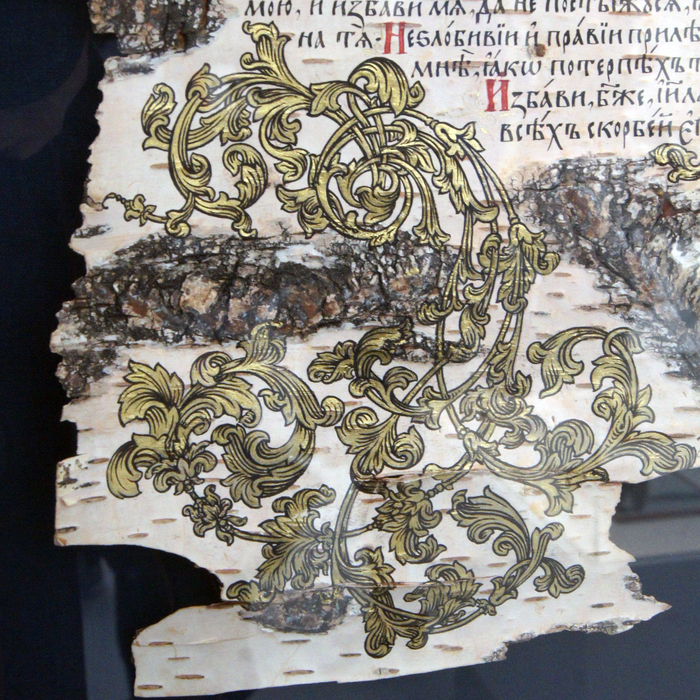 мою, и избави мѧ, да не постыжꙋсѧ,
на тѧ. Неѕло́бивїи и҆ пра́вїи прилѣ
мнѣ̀, ꙗ҆́кѡ потерпѣ́хъ т
И҆зба́ви, бж҃е, і҆и҃лѧ
всѣ́хъ скорбе́й є҆